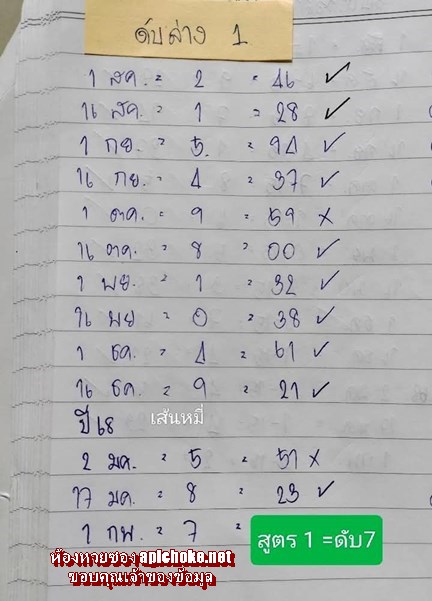 ดับล่าง 1
1 สค. = 2 = 46 ✓
16 สค. = 1 = 28 ✓
1 กย. = 5. = 94 ✓
16 กย. = 4 = 37 ✓
1 ตค. = 9 = 59 ×
16 ตค. = 8 = 00 ✓
1 พย. = 1 = 32 ✓
16 พย = 0 = 38 ✓
1 ธค. = 4 = 61 ✓
16 ธค. = 9 = 21 ✓
ปี 68 เส้นหมี่
2 มค. = 5 = 51 ×
17 มค. = 8 = 23 ✓
1 กพ. = 7 =
สูตร 1 =ดับ7
ห้องหวยซอง apichoke.net
ขอบคุณเจ้าของข้อมูล